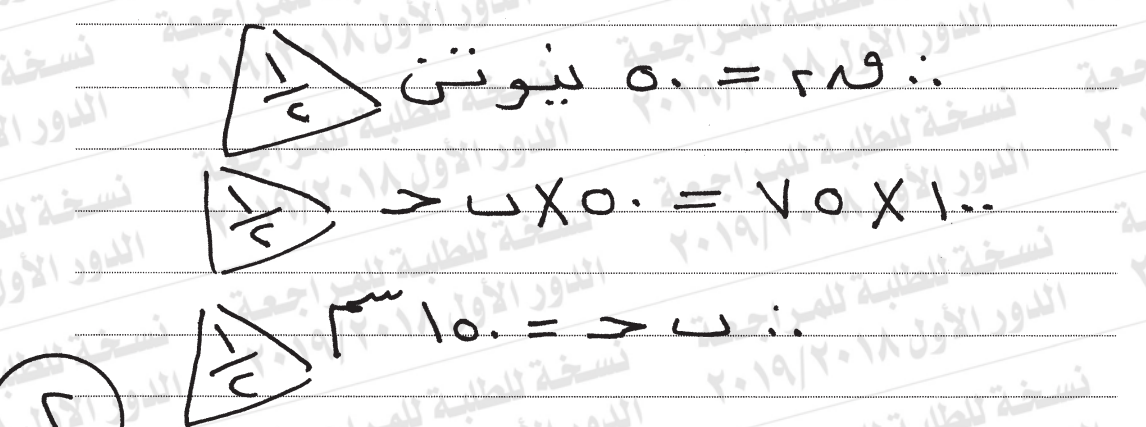 ∴ ق٢ = ٥٠ نيوتن ١/٢
١٠٠ × ٧٥ = ٥٠ × ب ح ١/٢
∴ ب ح = ١٥٠ سم ١/٢
٢
نسخة للطلبة للمراجعة
الدور الأول ٢٠١٩/٢٠١٨